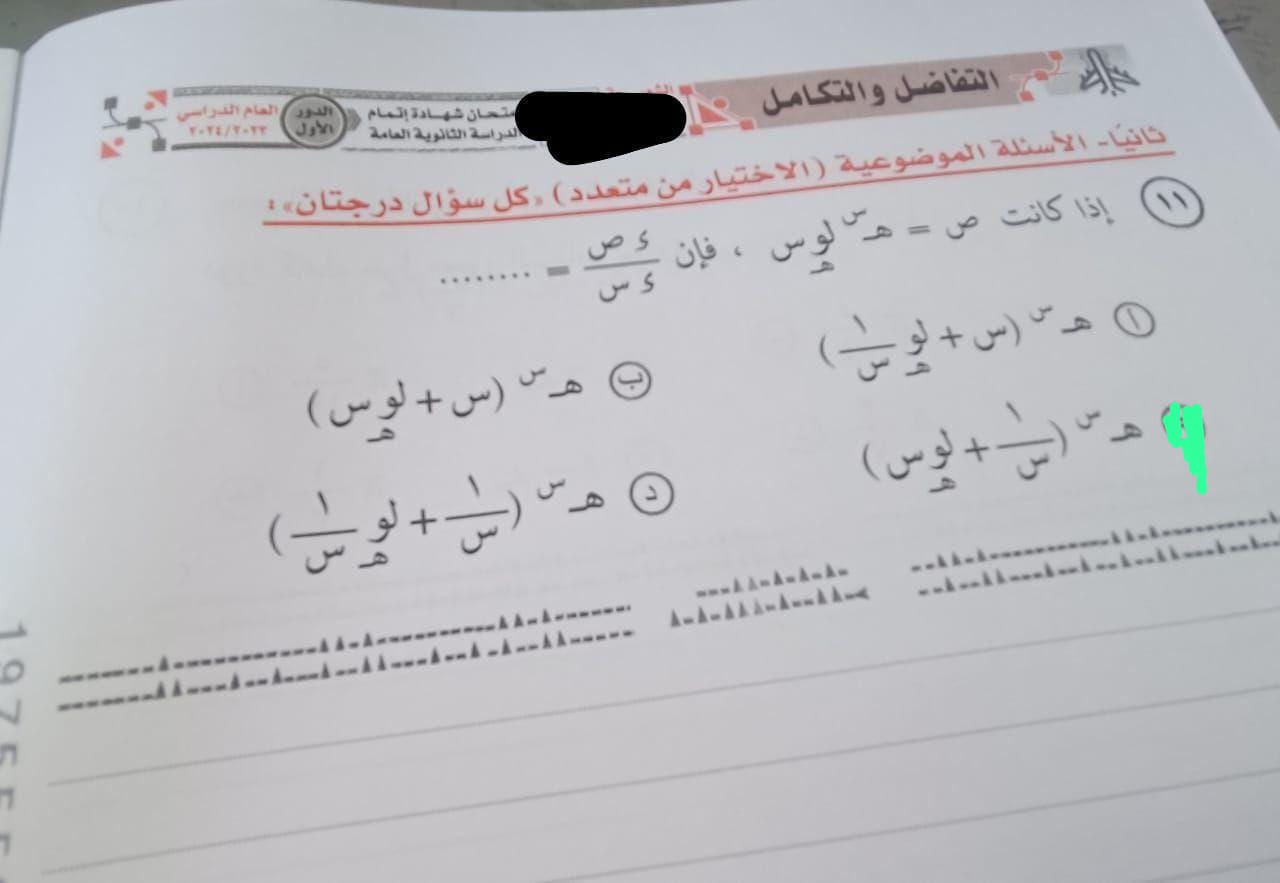 التفاضل والتكامل
امتحان شهادة إتمام
الدراسة الثانوية العامة
الدور
الأول
العام الدراسي
٢٠٢٤/٢٠٢٣
ثانيًا- الأسئلة الموضوعية (الاختيار من متعدد) «كل سؤال درجتان»:
١١ إذا كانت ص = هـ^س لو_هـ س ، فإن ء ص / ء س = ........
أ هـ^س (س + لو_هـ ١/س)
ب هـ^س (س + لو_هـ س)
هـ^س (١/س + لو_هـ س)
د هـ^س (١/س + لو_هـ ١/س)